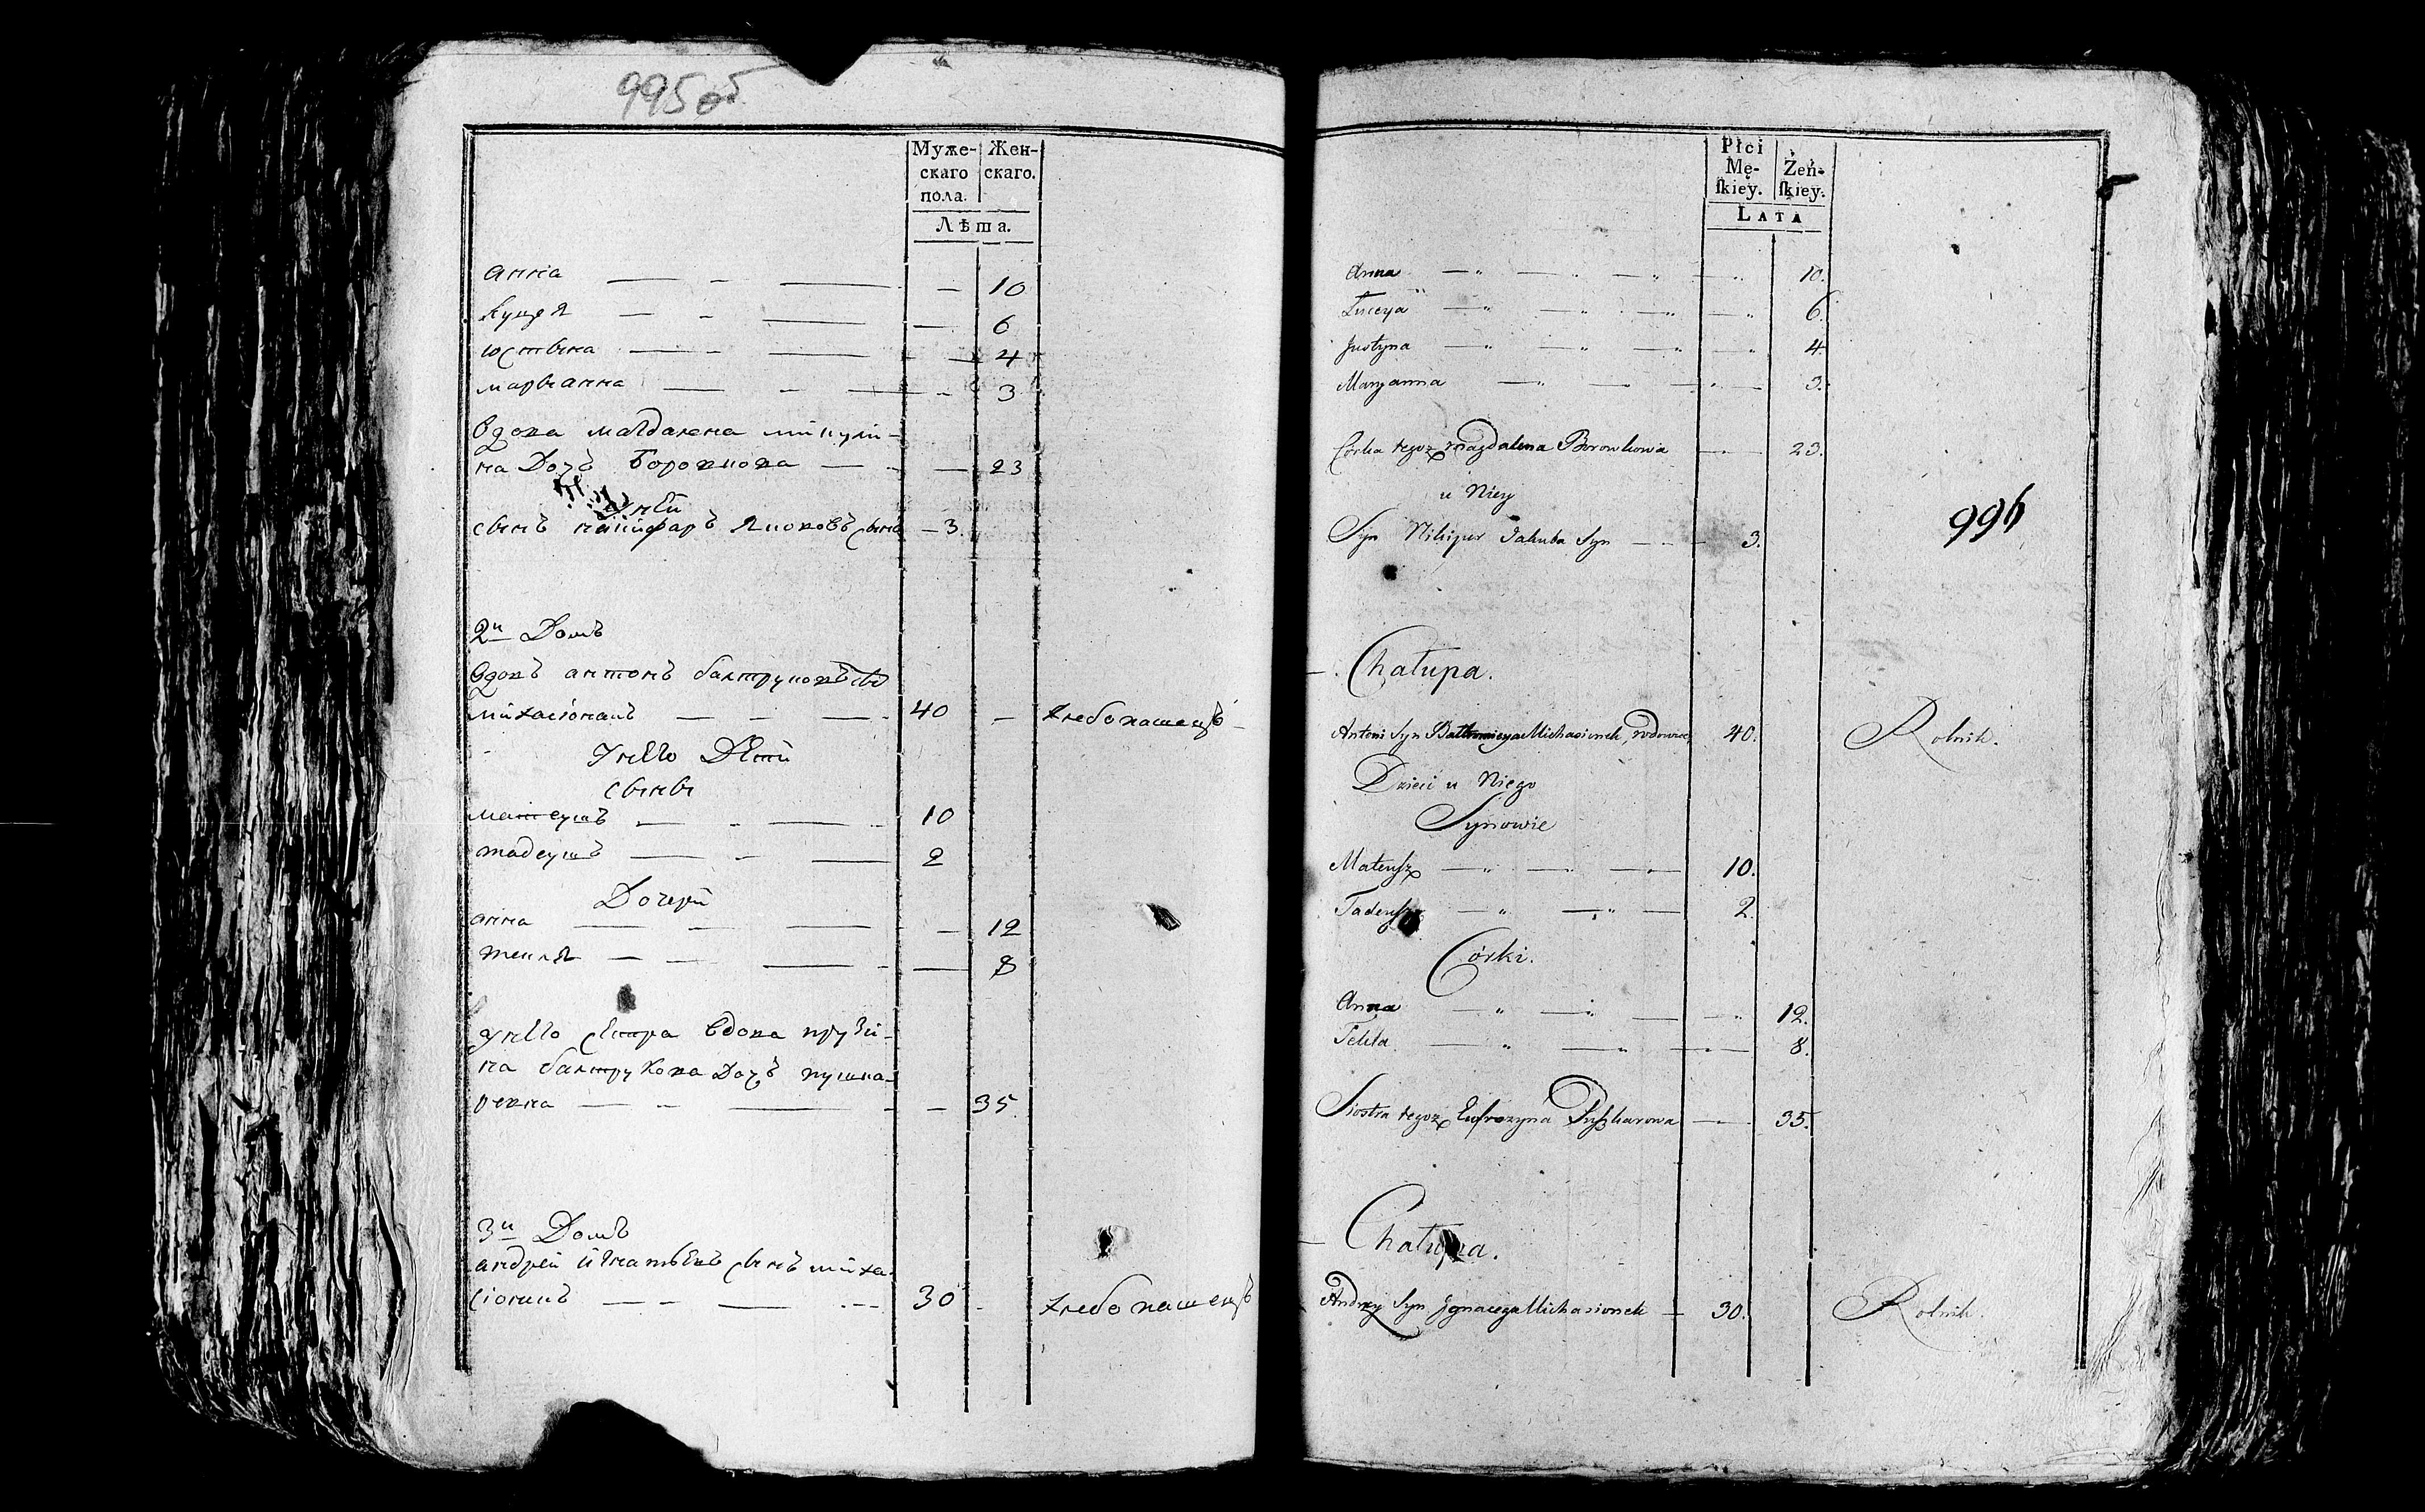 995 об
Муже- Жен-
скаго скаго.
пола.
Лѣта.
анна — - — — 10
луцея — - — — 6
юстына — - — — 4
марыанна — - — — 3
вдова магдалена микули-
на Дочъ Боровкова — - — 23
У нѣй
сынъ никифаръ Якововъ сынъ — 3.
2й Домъ
вдовъ антонъ балтруковъ сы
михасіонакъ — - — 40 — хлебопашецъ
У нѣго Дѣти
сыны
матеушъ — - — 10
тадеушъ — - — 2
Дочери
анна — - — — 12
текля — - — — 8
у нѣго сестра вдова прузи-
на балтрукова Дочъ пушка-
ревна — - — — 35.
3й Домъ
андрей игнатьевъ сынъ миха-
сіонакъ — - — 30 - хлебопашецъ
Płci
Mę- Żeń-
skiey. skiey.
LATA
Anna — „ — „ — „ — „ 10.
Łuceya — „ — „ — „ — „ 6.
Justyna — „ — „ — „ — „ 4.
Maryanna — „ — — „ — 3.
Córka tegoż Magdalena Borowkowa — 23.
u Niey
996
Syn Nikiper Jakuba Syn — 3.
Chałupa.
Antoni Syn Bałtromieya Michasionek, wdowiec, 40. Rolnik.
Dzieci u Niego
Synowie
Mateusz — „ — — 10.
Tadeusz — „ — „ — 2.
Córki.
Anna — „ — „ — — „ 12.
Tekla — „ — „ — „ — 8.
Siostra tegoż Eufrozyna Puszkarowa — 35.
Chałupa.
Andrzey Syn Jgnacego Michasionek — 30. Rolnik.